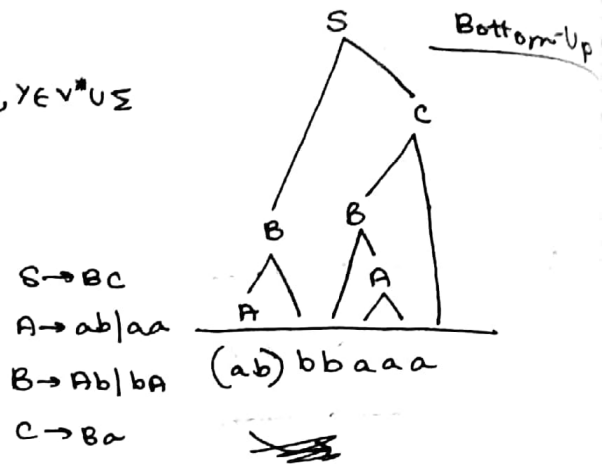 Bottom-Up
, γ ∈ V* ∪ Σ
S
C
B
B
A
A
S → BC
A → ab | aa
B → Ab | bA
C → Ba
(ab) bbaaa